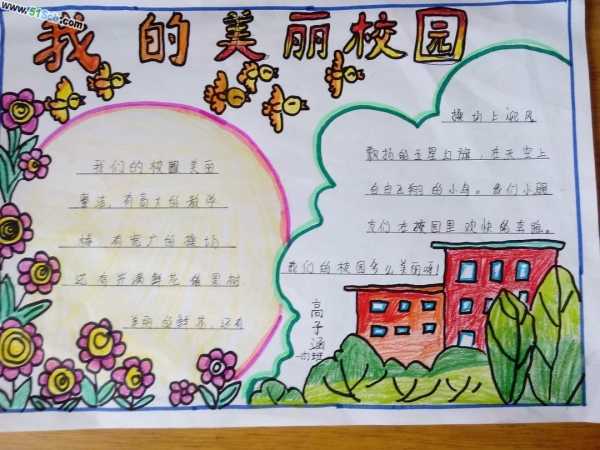 www.51Sch.com
我的美丽校园
我们的校园美丽
整洁,有高大的教学
楼,有宽广的操场
还有开满鲜花 的果树
美丽的鲜花,还有
操场上迎风
飘扬的五星红旗,在天空上
自由飞翔的小鸟。我们小朋
友们在校园里欢快的玩。
我们的校园多么美丽呀!
高子涵